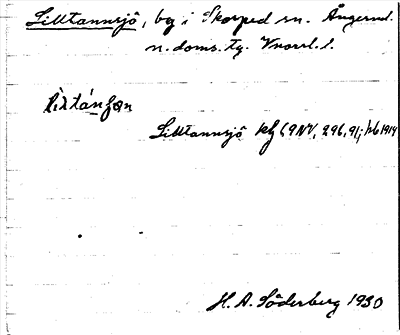 Lilltannsjö, by i Skorped sn. Ångerml.
n. doms. tg. Vnorrl. l.
Lilltannsjö kf 69NV, 296,91; jb 1914
H. A. Söderberg 1930